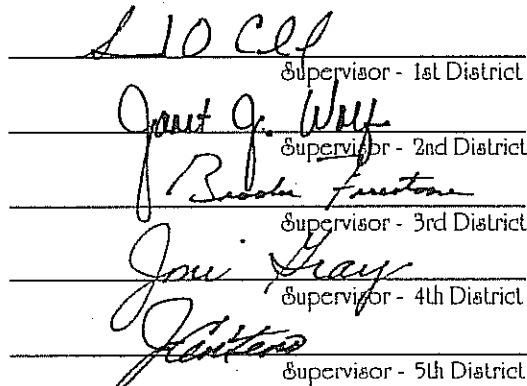 Supervisor - 1st District
Janet G. Wolf
Supervisor - 2nd District
Brooks Firestone
Supervisor - 3rd District
Joni Gray
Supervisor - 4th District
Supervisor - 5th District